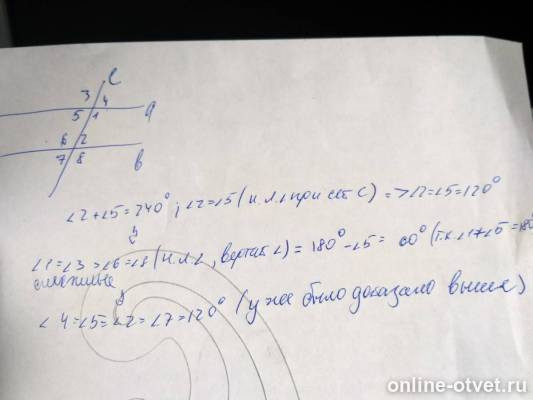 c
3 4
5 1 a
6 2
7 8 b
∠2+∠5=240°; ∠2=∠5 (н.л.∠ при сек c) => ∠2=∠5=120°
∠1=∠3=∠6=∠8 (н.л.∠, вертик ∠) = 180°-∠5= 60° (т.к. ∠1+∠5=180°
смежные
∠4=∠5=∠2=∠7=120° (уже было доказано выше)
online-otvet.ru